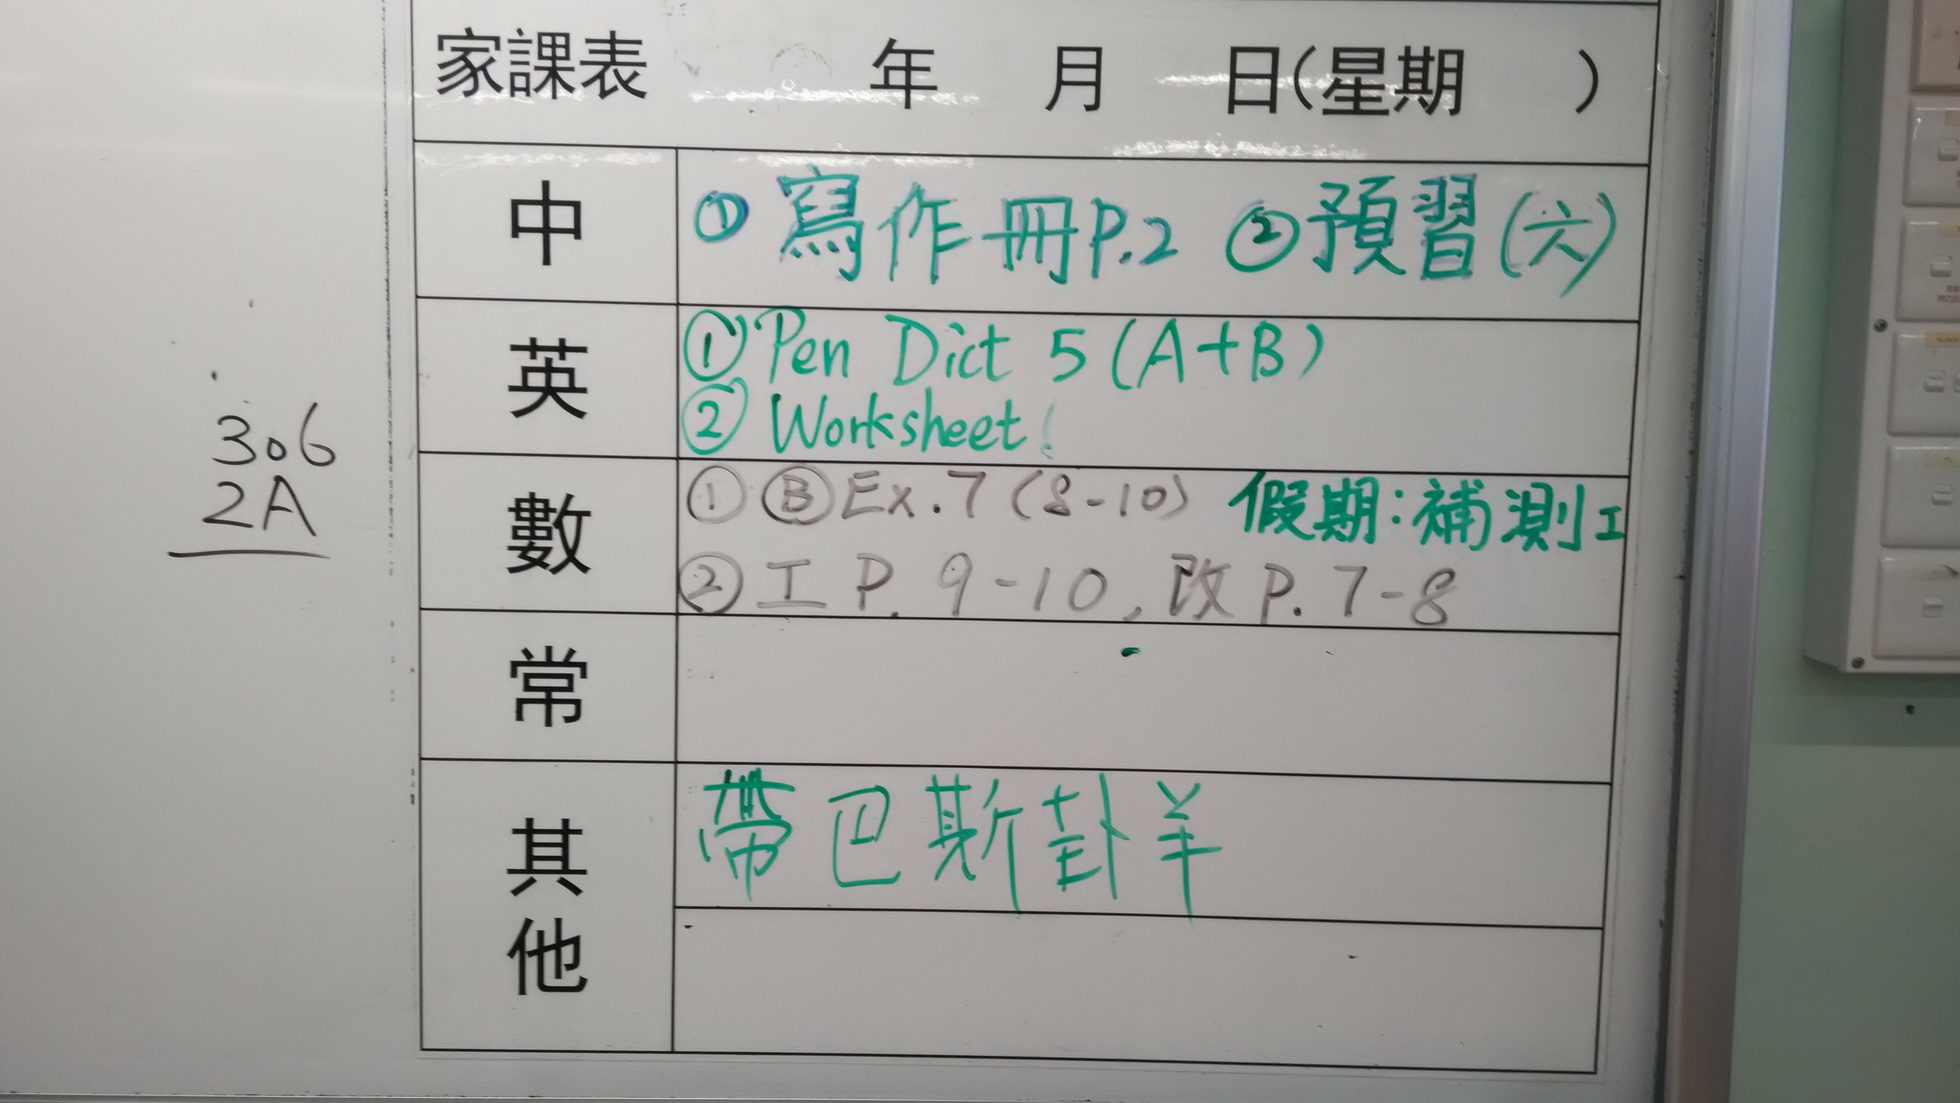 家課表 年 月 日(星期 )
中 ① 寫作冊P.2 ②預習(六)
英 ① Pen Dict 5 (A+B)
② Worksheet
306
2A
數 ① Ⓑ Ex.7 (8-10) 假期:補測工
② 工 P. 9-10, 改 P. 7-8
常
其他 帶巴斯卦羊